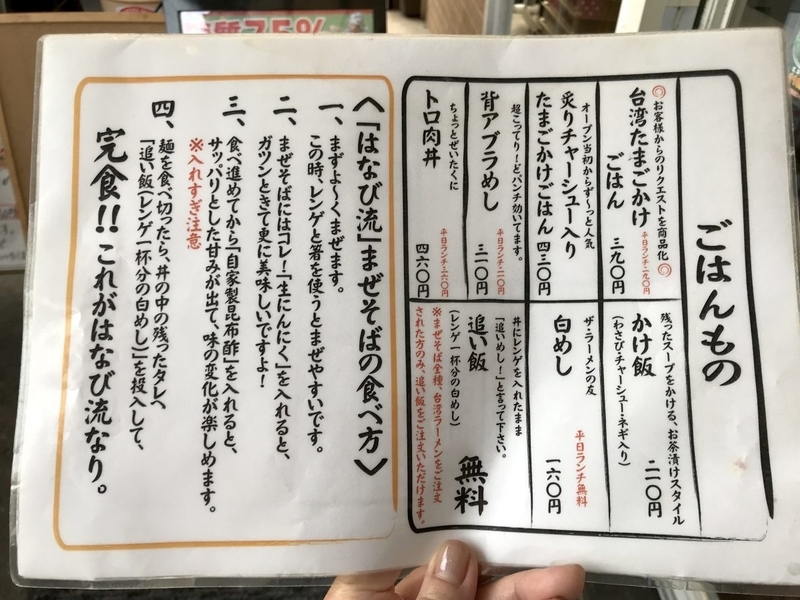 ごはんもの
◎お客様からのリクエストを商品化◎
台湾たまごかけ
ごはん
平日ランチ・二九〇円
三九〇円
オープン当初からず〜っと人気
炙りチャーシュー入り
たまごかけごはん
四三〇円
超こってり!どパンチ効いてます。
背アブラめし
平日ランチ・二一〇円
三一〇円
ちょっとぜいたくに
トロ肉丼
平日ランチ・三六〇円
四六〇円
残ったスープをかける、お茶漬けスタイル
かけ飯
(わさび・チャーシュー・ネギ入り)
二一〇円
ザ・ラーメンの友
白めし
平日ランチ無料
一六〇円
丼にレンゲを入れたまま
「追いめし!」と言って下さい。
追い飯
(レンゲ一杯分の白めし)
無料
※まぜそば全種、台湾ラーメンをご注文
された方のみ、追い飯をご注文いただけます。
〈「はなび流」まぜそばの食べ方〉
一、まずよ〜くまぜます。
この時、レンゲと箸を使うとまぜやすいです。
二、まぜそばにはコレ!「生にんにく」を入れると、
ガツンときて更に美味しいですよ!
三、食べ進めてから「自家製昆布酢」を入れると、
サッパリとした甘みが出て、味の変化が楽しめます。
※入れすぎ注意
四、麺を食べ切ったら、丼の中の残ったタレへ
「追い飯(レンゲ一杯分の白めし)」を投入して、
完食!!これがはなび流なり。